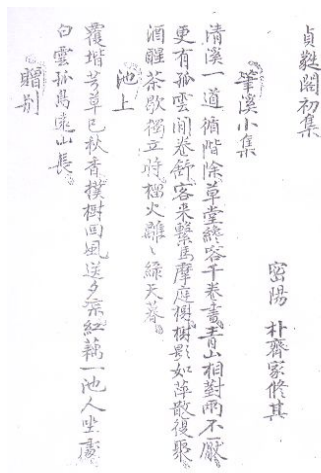 貞蕤閣初集
密陽 朴齊家修其
筆溪小集
清溪一道循階除草堂終容千卷書青山相對兩不厭
更有孤雲閒卷舒客来繫馬摩庭槐樹影如萍散復聚
酒醒茶歇獨立時榴火離〻綠天暮
池上
覆堦芳草已秋香撲樹回風送夕涼紅藕一池人坐處
白雲孤鳥遠山長
贈別